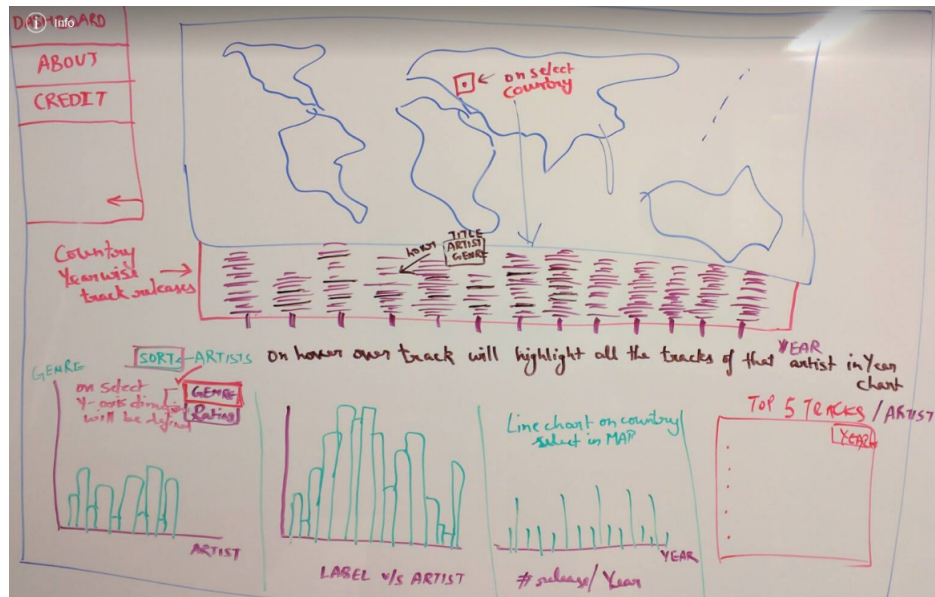 DASHBOARD
Info
ABOUT
CREDIT
on select
country
Country
Yearwise
track releases
hover
TITLE
ARTIST
GENRE
SORT
ARTISTS
on hover over track will highlight all the tracks of that artist in Year
chart
YEAR
GENRE
on select
Y-axis
will be
GENRE
Rating
ARTIST
LABEL v/s ARTIST
Line chart on country
select in MAP
YEAR
# release/ Year
TOP 5 TRACKS / ARTIST
YEAR